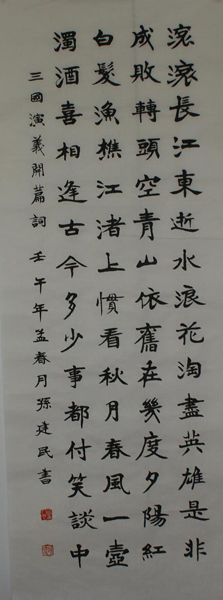 滚滚長江東逝水浪花淘盡英雄是非
成敗轉頭空青山依舊在幾度夕陽紅
白髮漁樵江渚上慣看秋月春風一壺
濁酒喜相逢古今多少事都付笑談中
三國演義開篇詞 壬午年孟春月孫建民書